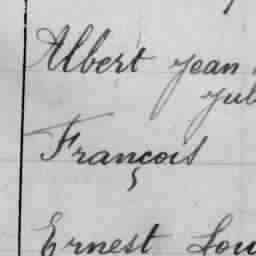 Albert Jean
Jul
François
Ernest Lou